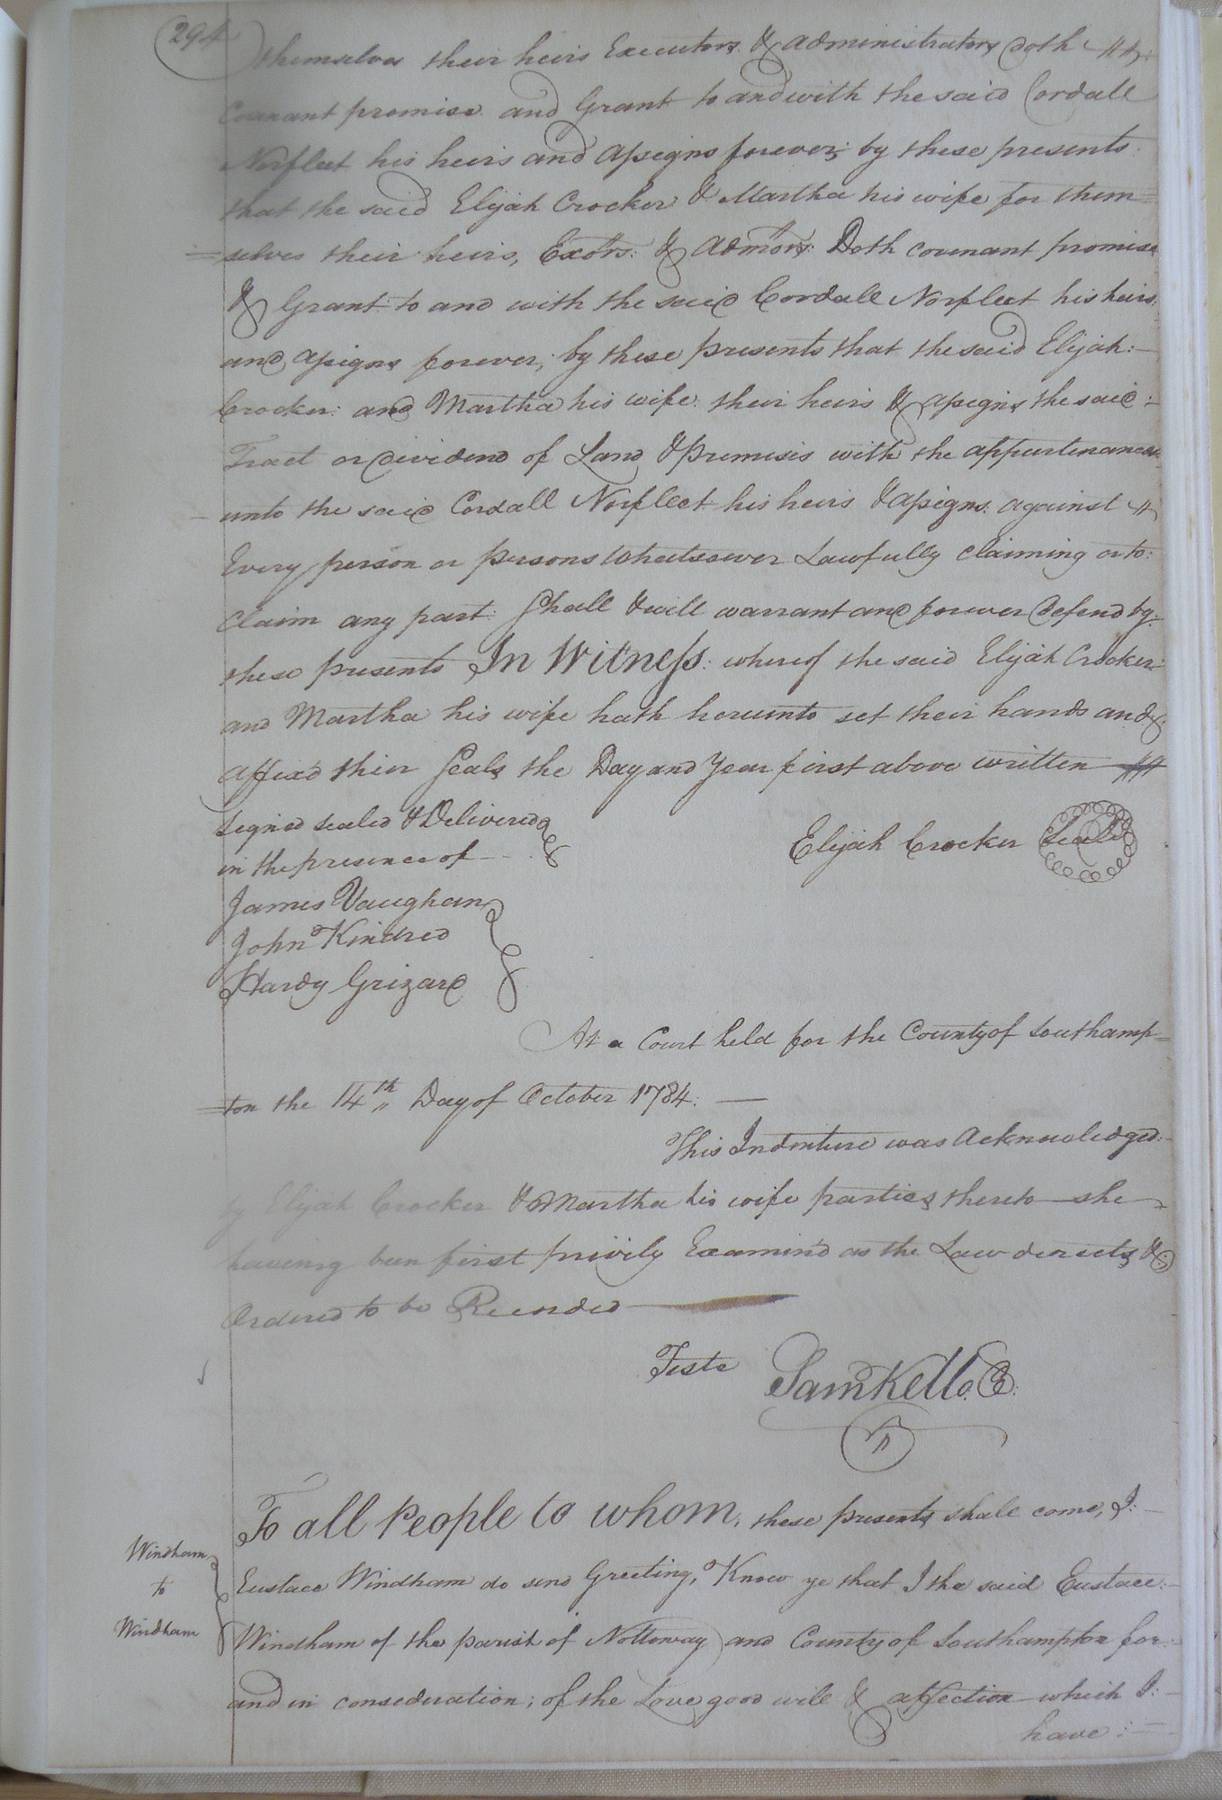 294
themselves their heirs Executors & administrators doth
Covenant promise and Grant to and with the said Cordall
Norfleet his heirs and assigns forever; by these presents
that the said Elijah Crocker & Martha his wife for them=
=selves their heirs, Exo'rs. & Adm'ors: Doth covenant promise
& Grant to and with the said Cordall Norfleet his heirs
and assigns forever; by these presents that the said Elijah:
Crocker: and Martha his wife their heirs & assigns the said:
Tract or dividend of Land & Premisis with the appurtenances
unto the said Cordall Norfleet his heirs & assigns against
Every person or persons Whatsoever Lawfully claiming or to:
Claim any part: Shall & will warrant and forever defend by:
these presents In Witness: whereof the said Elijah Crocker:
and Martha his wife hath hereunto set their hands and
affix'd thier Seals the Day and Year first above written
Signed sealed & Delivered
in the presence of
Elijah Crocker Seal
James Vaughan
John Kindred
Hardy Grizard
At a Court held for the County of Southamp=
=ton the 14th Day of October 1784.
This Indenture was Acknowledged:
by Elijah Crocker & Martha his wife parties thereto she
having been first privily Examin'd as the Law directs &
Ordered to be Recorded
Teste Sam Kello C
To all People to whom, these presents shall come, I:
Windham
to
Windham
Eustace Windham do send Greeting, Know ye that I the said Eustace:
Windham of the parish of Nottoway and County of Southampton for
and in consideration; of the Love good will & affection which I:
have: